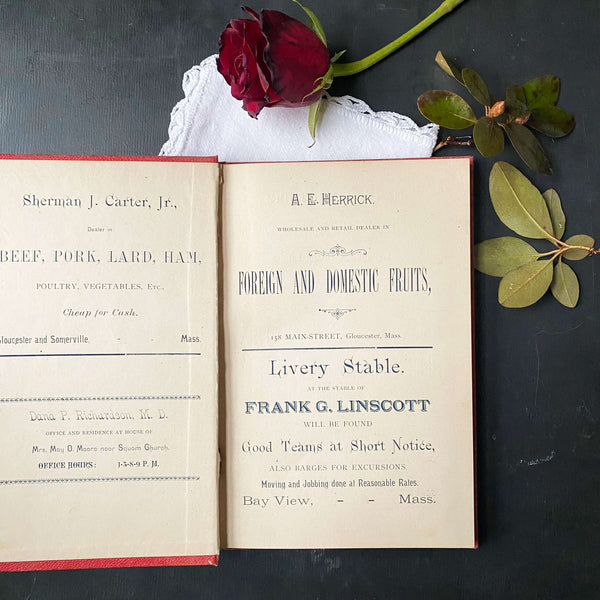 Sherman J. Carter, Jr.,
Dealer in
BEEF, PORK, LARD, HAM,
POULTRY, VEGETABLES, Etc.,
Cheap for Cash.
Gloucester and Somerville, - - Mass.
Dana P. Richardson, M. D.
OFFICE AND RESIDENCE AT HOUSE OF
Mrs. May O. Moore near Squam Church.
OFFICE HOURS: 1-5-8-9 P. M.
A. E. HERRICK.
WHOLESALE AND RETAIL DEALER IN
FOREIGN AND DOMESTIC FRUITS,
158 MAIN-STREET, Gloucester, Mass.
Livery Stable.
AT THE STABLE OF
FRANK G. LINSCOTT
WILL BE FOUND
Good Teams at Short Notice,
ALSO BARGES FOR EXCURSIONS.
Moving and Jobbing done at Reasonable Rates.
Bay View, - - Mass.